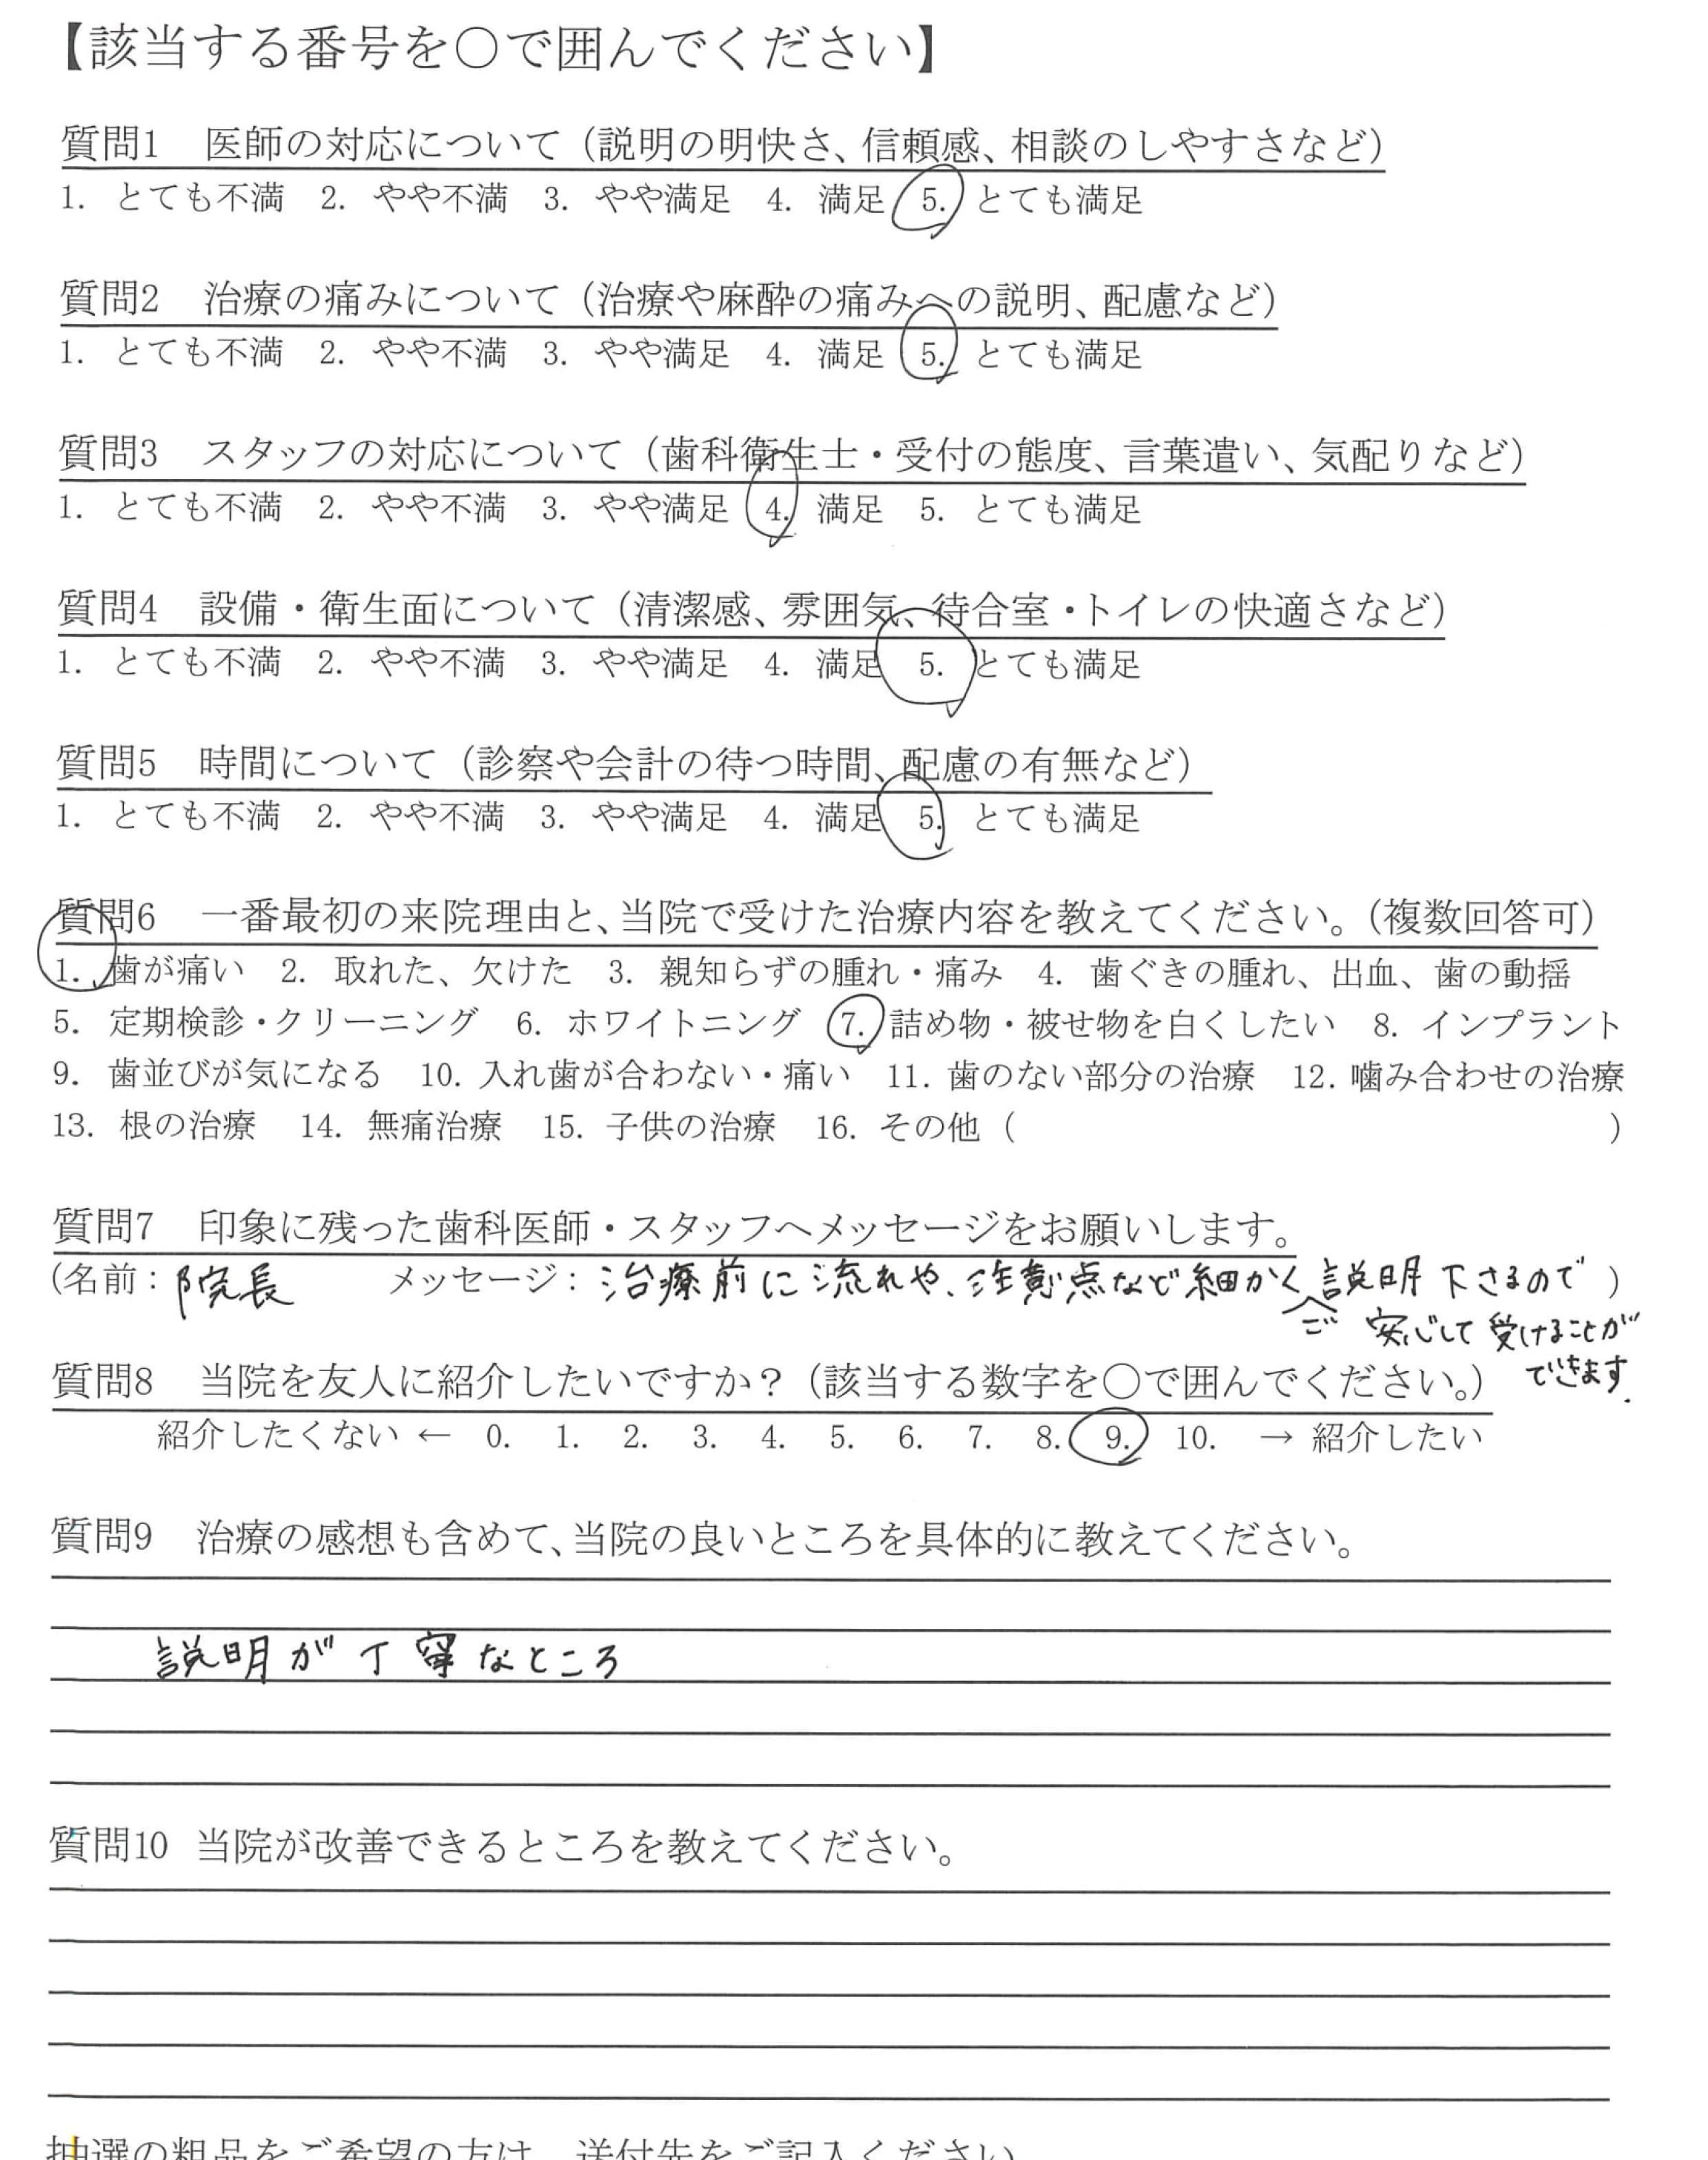 【該当する番号を〇で囲んでください】
質問1　医師の対応について（説明の明快さ、信頼感、相談のしやすさなど）
1. とても不満　2. やや不満　3. やや満足　4. 満足　5. とても満足
質問2　治療の痛みについて（治療や麻酔の痛みへの説明、配慮など）
1. とても不満　2. やや不満　3. やや満足　4. 満足　5. とても満足
質問3　スタッフの対応について（歯科衛生士・受付の態度、言葉遣い、気配りなど）
1. とても不満　2. やや不満　3. やや満足　4. 満足　5. とても満足
質問4　設備・衛生面について（清潔感、雰囲気、待合室・トイレの快適さなど）
1. とても不満　2. やや不満　3. やや満足　4. 満足　5. とても満足
質問5　時間について（診察や会計の待つ時間、配慮の有無など）
1. とても不満　2. やや不満　3. やや満足　4. 満足　5. とても満足
質問6　一番最初の来院理由と、当院で受けた治療内容を教えてください。（複数回答可）
1. 歯が痛い　2. 取れた、欠けた　3. 親知らずの腫れ・痛み　4. 歯ぐきの腫れ、出血、歯の動揺
5. 定期検診・クリーニング　6. ホワイトニング　7. 詰め物・被せ物を白くしたい　8. インプラント
9. 歯並びが気になる　10. 入れ歯が合わない・痛い　11. 歯のない部分の治療　12. 噛み合わせの治療
13. 根の治療　14. 無痛治療　15. 子供の治療　16. その他（　　　　）
質問7　印象に残った歯科医師・スタッフへメッセージをお願いします。
（名前：院長　　メッセージ：治療前に流れや、注意点など細かくご説明下さるので）
安心して受けることが
できます.
質問8　当院を友人に紹介したいですか？（該当する数字を〇で囲んでください。）
紹介したくない ← 0. 1. 2. 3. 4. 5. 6. 7. 8. 9. 10. → 紹介したい
質問9　治療の感想も含めて、当院の良いところを具体的に教えてください。
説明が丁寧なところ
質問10 当院が改善できるところを教えてください。
抽選の粗品をご希望の方は、送付先をご記入ください